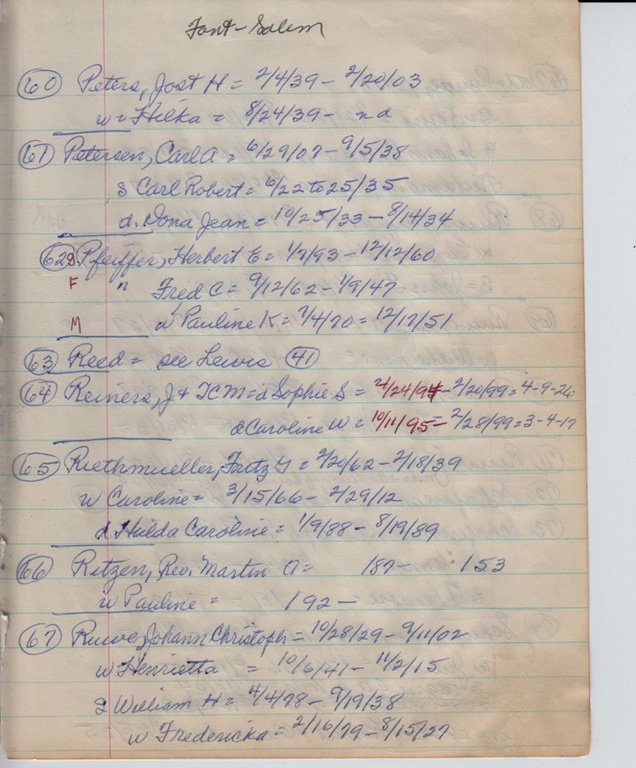 Font-Salem
60 Peters, Jost H = 2/4/39 - 2/20/03
w = Hilka = 8/24/39 - nd
61 Petersen, Carl A = 6/29/07 - 9/5/38
S Carl Robert = 6/22 to 25/35
d. Dona Jean = 10/25/33 - 8/14/34
62 S Pfeiffer, Herbert E = 1/7/93 - 12/12/60
F " Fred C = 9/12/62 - 1/9/47
M w Pauline K = 7/4/70 = 12/17/51
63 Reed = see Lewis 41
64 Reiners, J + TCM = d Sophie S = 2/24/94 - 2/20/99 = 4-9-26
d Caroline W = 10/11/95 - 2/28/99 = 3-4-17
65 Riethmueller, Fritz G = 2/20/62 - 2/18/39
w Caroline = 3/15/66 - 2/29/12
d Hulda Caroline = 1/9/88 - 8/19/89
66 Ritzen, Rev. Martin A = 187- - 153
w Pauline = 192-
67 Ruwe, Johann Christoph = 10/28/29 - 9/11/02
w Henrietta = 10/6/41 - 11/2/15
2 William H = 4/4/78 - 9/19/38
w Fredericka = 2/16/79 - 8/15/27